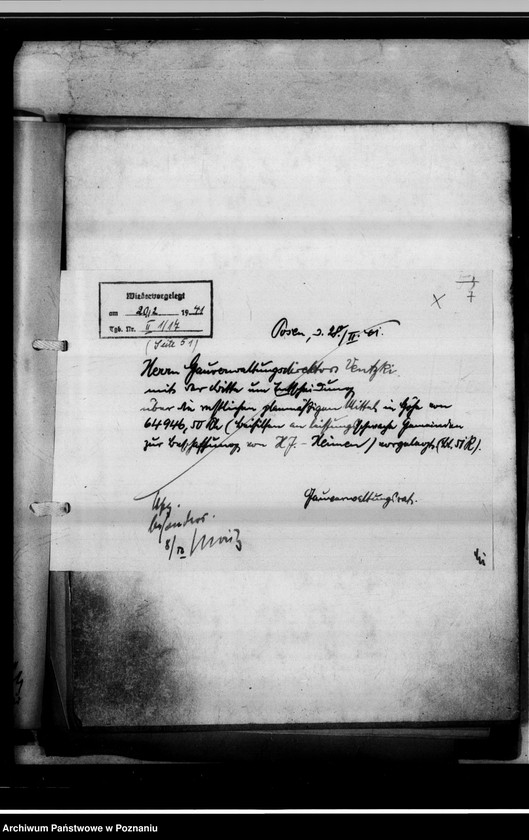 Wiedervorgelegt
am 20/2. 1941
Tgb. Nr. II 1/17
(Seite 51)
Posen, d. 28./II. 41.
Herrn Gauverwaltungsdirektor Ventzki
mit der Bitte um Entscheidung
über die restlichen planmäßigen Mittel in Höhe von
64946,50 RM (Beihilfen an leistungsschwache Gemeinden
zur Beschaffung von HJ.-Heimen) vorgelegt (Bl. 51 R).
Gauverwaltungsrat.
besonders.
8/III
Archiwum Państwowe w Poznaniu